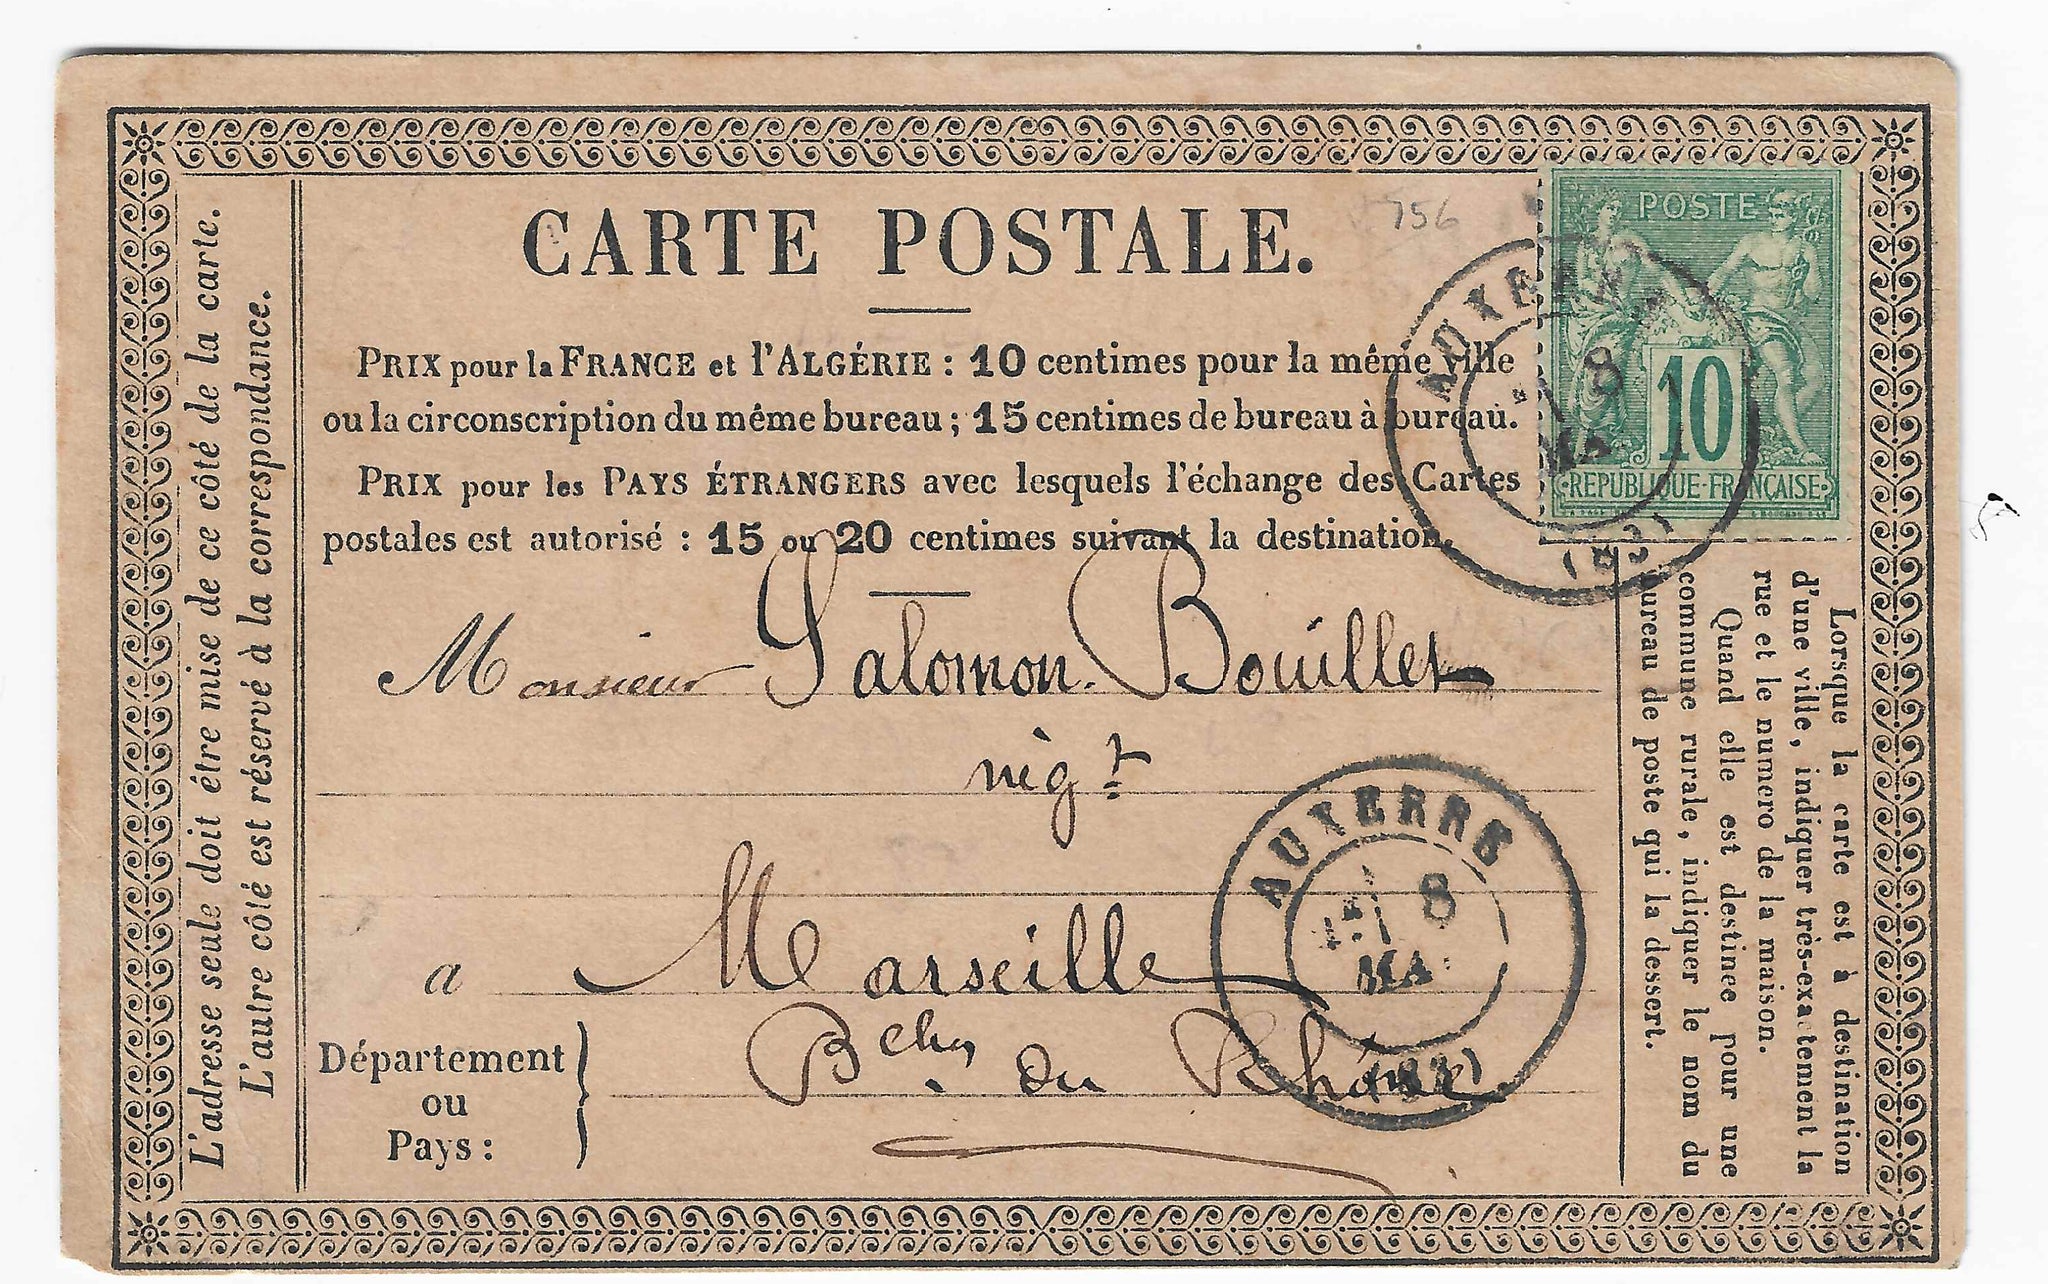 L'adresse seule doit être mise de ce côté de la carte.
L'autre côté est réservé à la correspondance.
CARTE POSTALE.
756
POSTE
10
REPUBLIQUE-FRANÇAISE
AUXERRE
8
MA
PRIX pour la FRANCE et l'ALGÉRIE : 10 centimes pour la même ville
ou la circonscription du même bureau ; 15 centimes de bureau à bureau.
PRIX pour les PAYS ÉTRANGERS avec lesquels l'échange des Cartes
postales est autorisé : 15 ou 20 centimes suivant la destination.
Monsieur Salomon Bouillet
nég.t
AUXERRE
8
MA
a Marseille
Département
ou
Pays :
Bches du Rhône
Lorsque la carte est à destination
d'une ville, indiquer très-exactement la
rue et le numero de la maison.
Quand elle est destinée pour une
commune rurale, indiquer le nom du
bureau de poste qui la dessert.